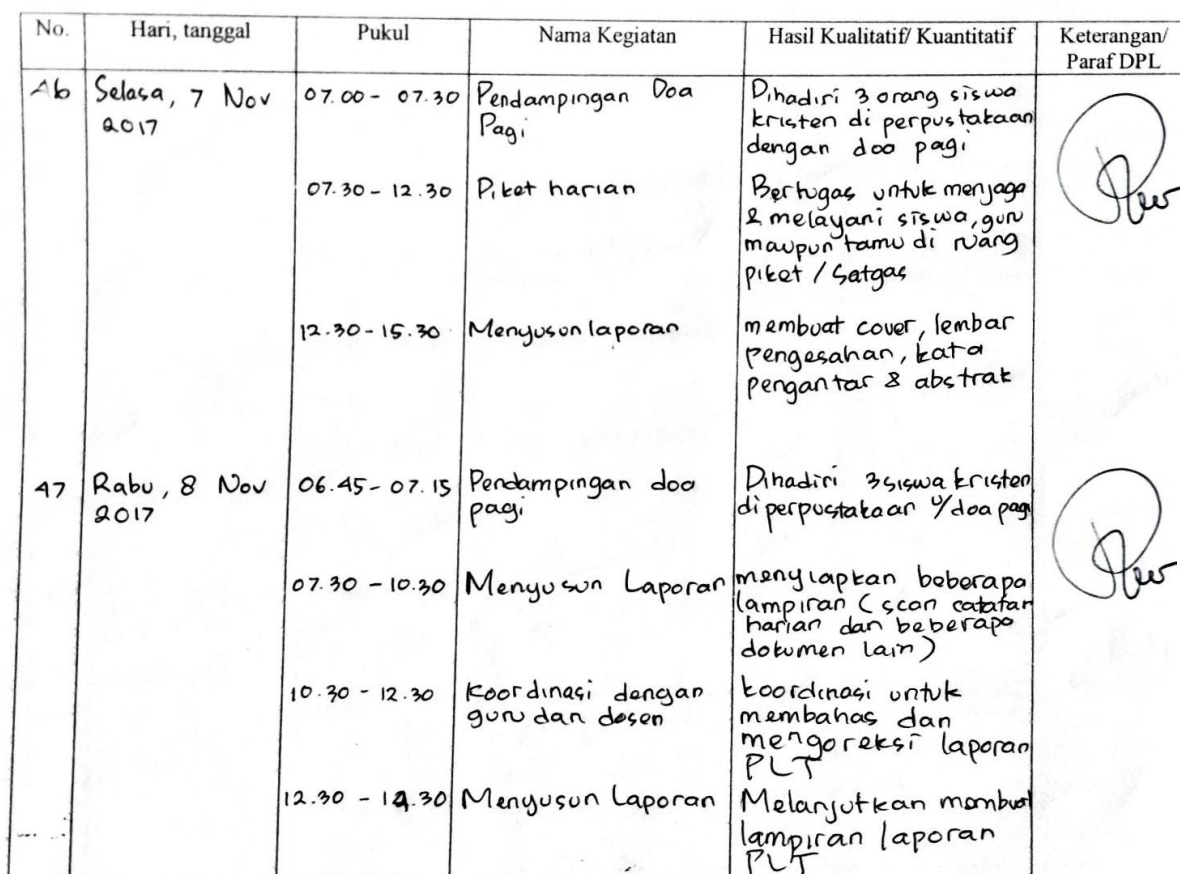 No. Hari, tanggal Pukul Nama Kegiatan Hasil Kualitatif/ Kuantitatif Keterangan/
Paraf DPL
46 Selasa, 7 Nov 07.00 - 07.30 Pendampingan Doa Dihadiri 3 orang siswa
2017 Pagi kristen di perpustakaan
dengan doa pagi
07.30 - 12.30 Piket harian Bertugas untuk menjaga
& melayani siswa, guru
maupun tamu di ruang
piket / Satgas
12.30 - 15.30 Menyusun laporan membuat cover, lembar
pengesahan, kata
pengantar & abstrak
47 Rabu, 8 Nov 06.45 - 07.15 Pendampingan doa Dihadiri 3 siswa kristen
2017 pagi di perpustakaan u/ doa pagi
07.30 - 10.30 Menyusun Laporan menyiapkan beberapa
lampiran (scan catatan
harian dan beberapa
dokumen lain)
10.30 - 12.30 Koordinasi dengan koordinasi untuk
guru dan dosen membahas dan
mengoreksi laporan
PLT
12.30 - 14.30 Menyusun Laporan Melanjutkan membuat
lampiran laporan
PLT